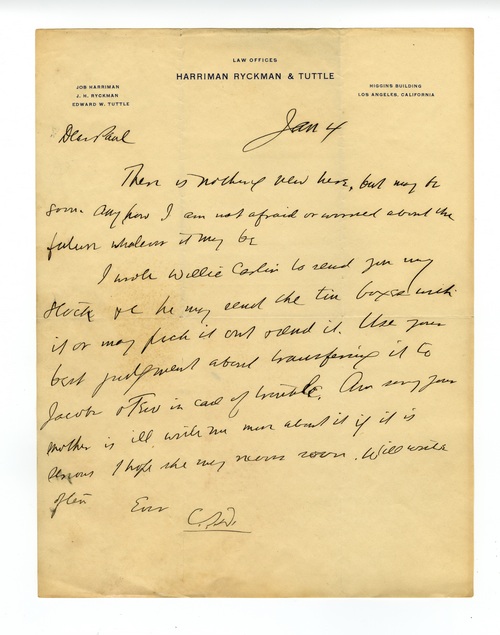 LAW OFFICES
HARRIMAN RYCKMAN & TUTTLE
JOB HARRIMAN
J. H. RYCKMAN
EDWARD W. TUTTLE
HIGGINS BUILDING
LOS ANGELES, CALIFORNIA
Jan 4
Dear Paul
There is nothing new here, but may be
soon. Anyhow I am not afraid or worried about the
future whatever it may be
I wrote Willie Carlin to send you my
stock &c he may send the tin boxes with
it or may pick it out & send it. Use your
best judgment about transferring it to
Jacob in case of trouble. Am sorry your
mother is ill write me more about it if it is
serious I hope she may soon. Will write
often
Ever
C.S.D.